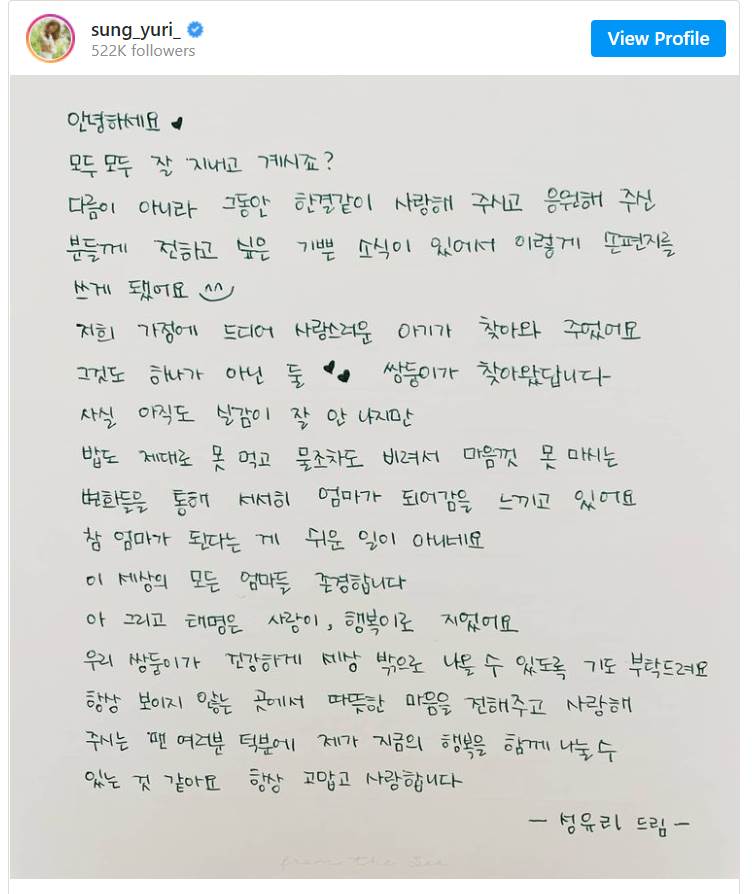 sung_yuri_
522K followers
View Profile
안녕하세요
모두모두 잘 지내고 계시죠?
다름이 아니라 그동안 한결같이 사랑해 주시고 응원해 주신
분들께 전하고 싶은 기쁜 소식이 있어서 이렇게 손편지를
쓰게 됐어요 ^^
저희 가정에 드디어 사랑스러운 아기가 찾아와 주었어요
그것도 하나가 아닌 둘 쌍둥이가 찾아왔답니다-
사실 아직도 실감이 잘 안 나지만
밥도 제대로 못 먹고 물조차도 비려서 마음껏 못 마시는
변화들을 통해 서서히 엄마가 되어감을 느끼고 있어요
참 엄마가 된다는 게 쉬운 일이 아니네요
이 세상의 모든 엄마들 존경합니다
아 그리고 태명은 사랑이, 행복이로 지었어요
우리 쌍둥이가 건강하게 세상 밖으로 나올 수 있도록 기도 부탁드려요
항상 보이지 않는 곳에서 따뜻한 마음을 전해주고 사랑해
주시는 팬 여러분 덕분에 제가 지금의 행복을 함께 나눌 수
있는 것 같아요 항상 고맙고 사랑합니다
- 성유리 드림 -
from the Sea